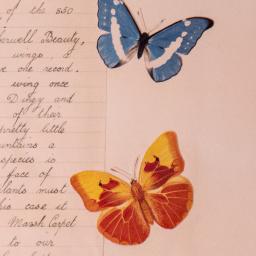 of the 850
rwell Beauty,
wings, a
one record.
wing once
Dingy and
of their
pretty little
ountains a
species is
face of
plants must
his case it
Marsh Carpet
to our